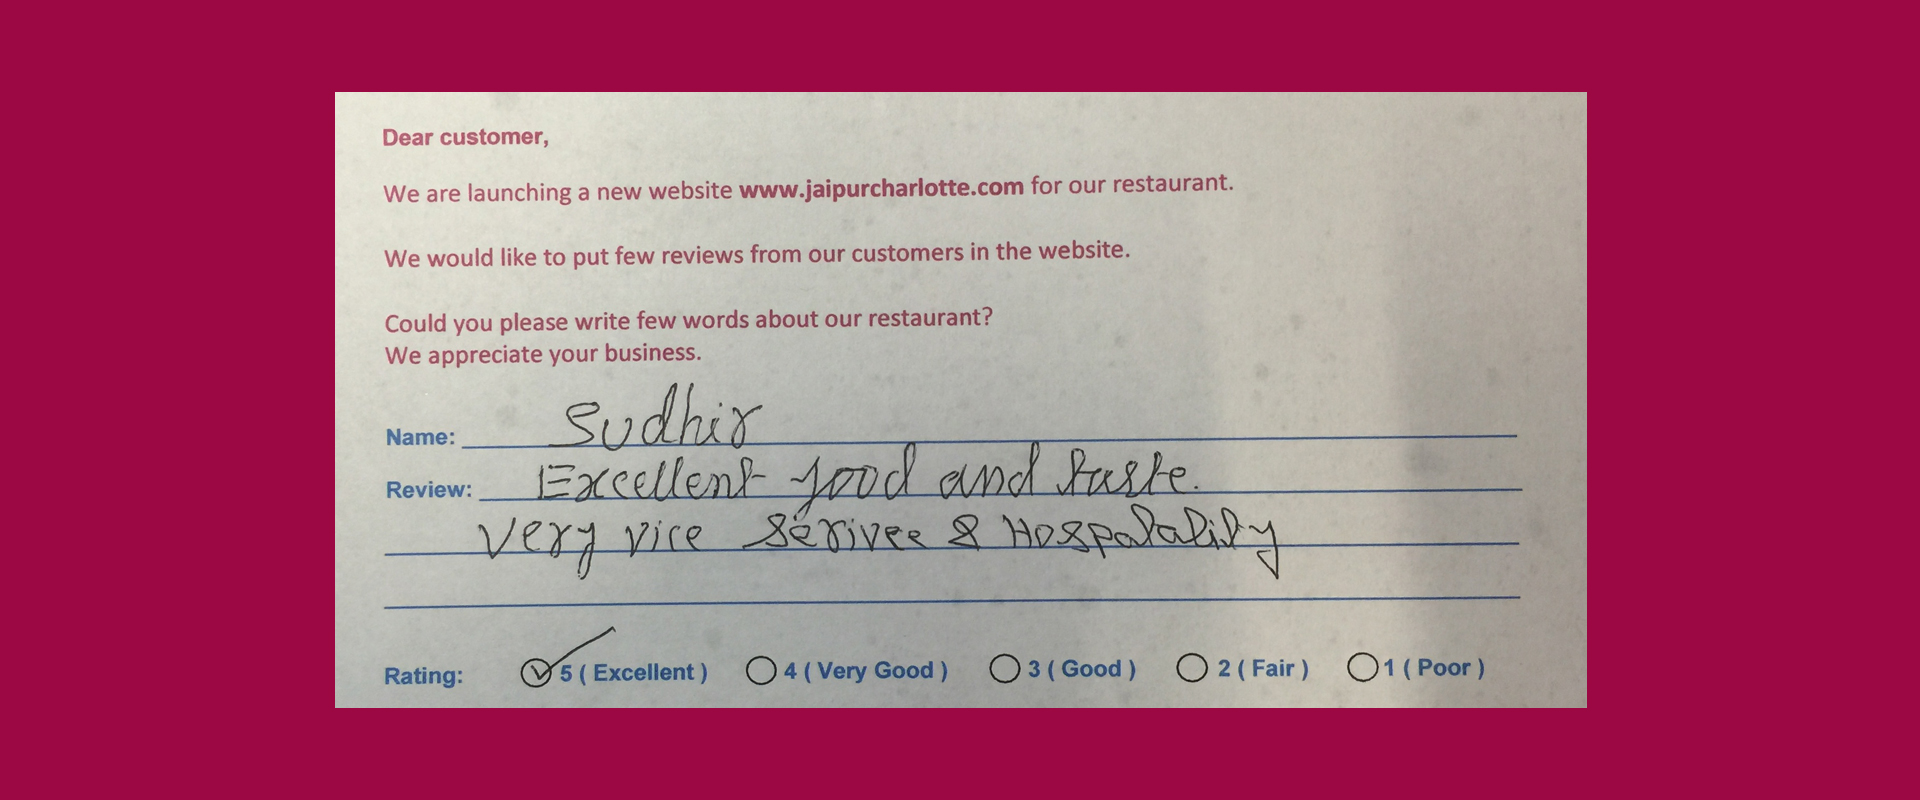 Dear customer,
We are launching a new website www.jaipurcharlotte.com for our restaurant.
We would like to put few reviews from our customers in the website.
Could you please write few words about our restaurant?
We appreciate your business.
Name: Sudhir
Review: Excellent food and taste.
Very vice Serivee & Hospatality
Rating: 5 ( Excellent ) 4 ( Very Good ) 3 ( Good ) 2 ( Fair ) 1 ( Poor )